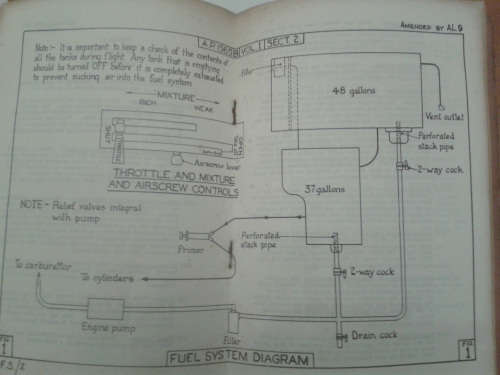 AMENDED BY A.L.9
A.P.1565B, VOL. I SECT. 2.
Note:- It is important to keep a check of the contents of
all the tanks during flight. Any tank that is emptying
should be turned OFF before it is completely exhausted
to prevent sucking air into the fuel system.
MIXTURE
RICH
WEAK
SHUT
THROTTLE
OPEN
Airscrew lever
THROTTLE AND MIXTURE
AND AIRSCREW CONTROLS
NOTE:- Relief valves integral
with pump
Filler
48 gallons
Vent outlet
Perforated
stack pipe
2-way cock
37 gallons
Primer
Perforated
stack pipe
To carburettor
To cylinders
2-way cock
Engine pump
Filter
Drain cock
FIG.
1
FUEL SYSTEM DIAGRAM
FIG.
1
F.S./2